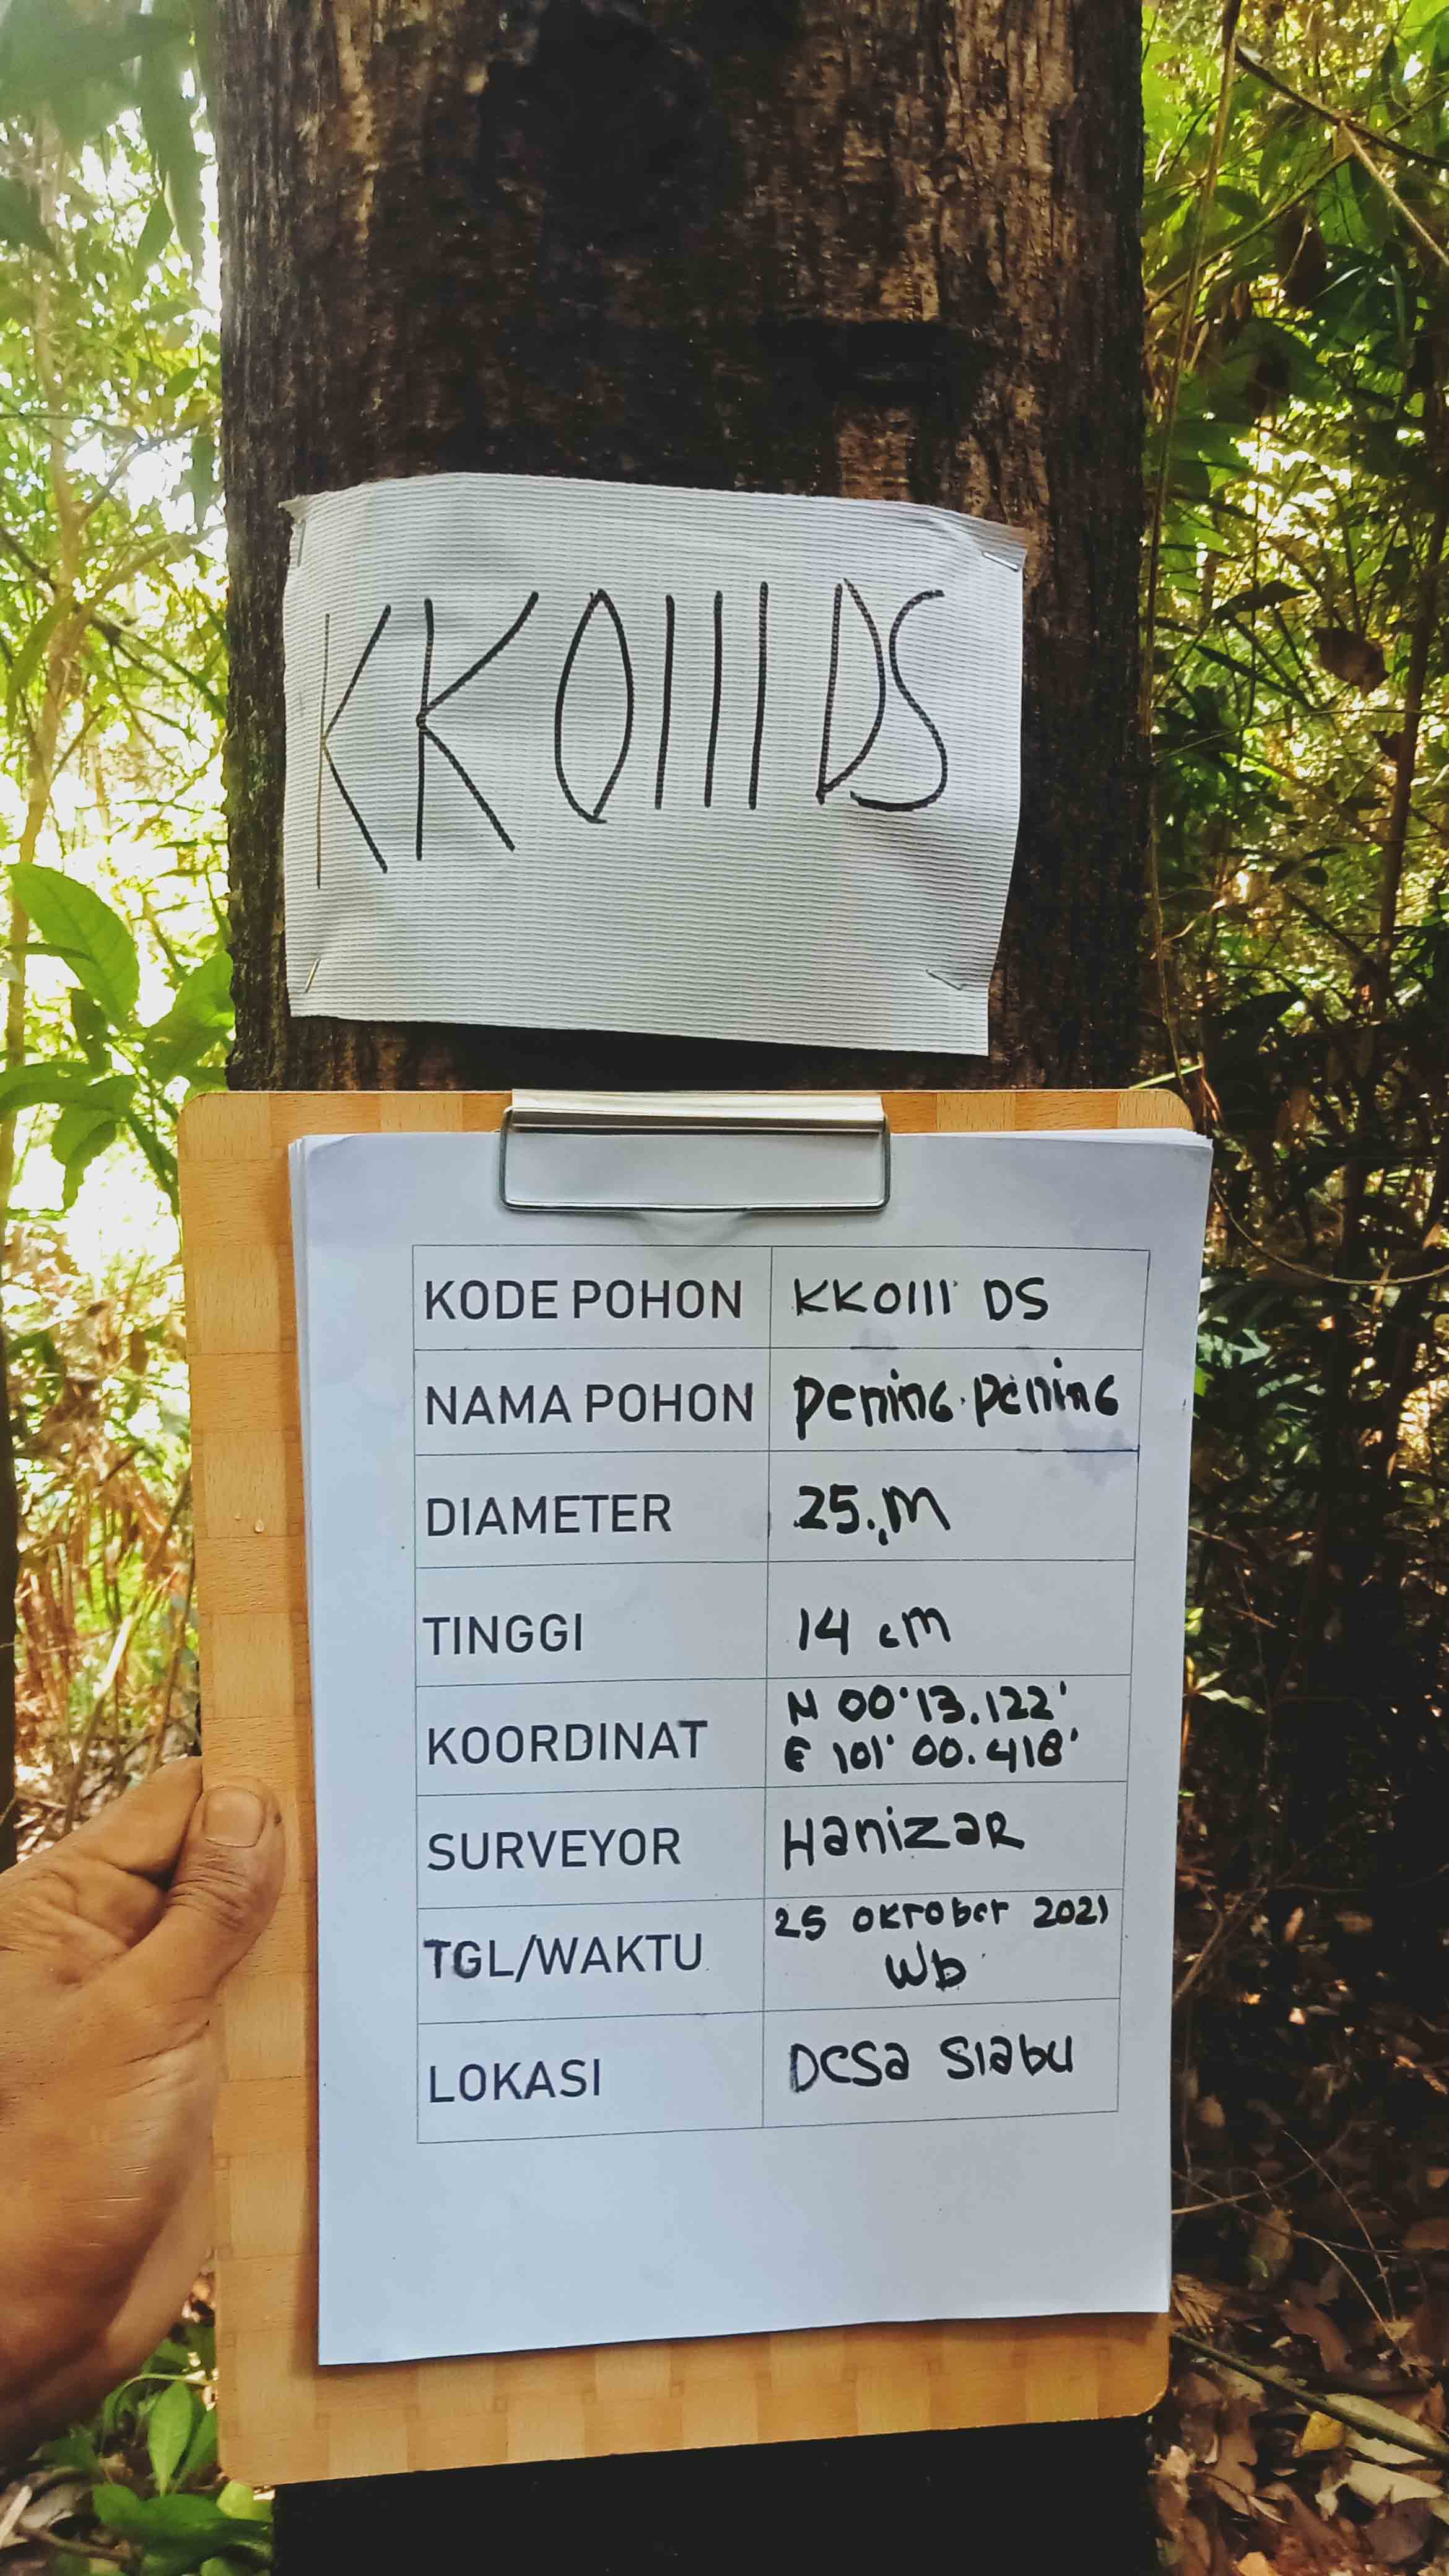 KK0111DS
KODE POHON KK0111 DS
NAMA POHON Pening.Pening
DIAMETER 25.,M
TINGGI 14 cM
KOORDINAT N 00°13.122'
E 101° 00.418'
SURVEYOR HanizaR
TGL/WAKTU 25 OKTober 2021
Wb
LOKASI Desa Siabu